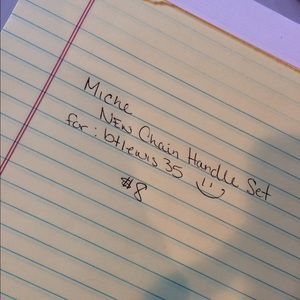 Miche
NEW Chain Handle Set
for: btlewis35 :)
#8